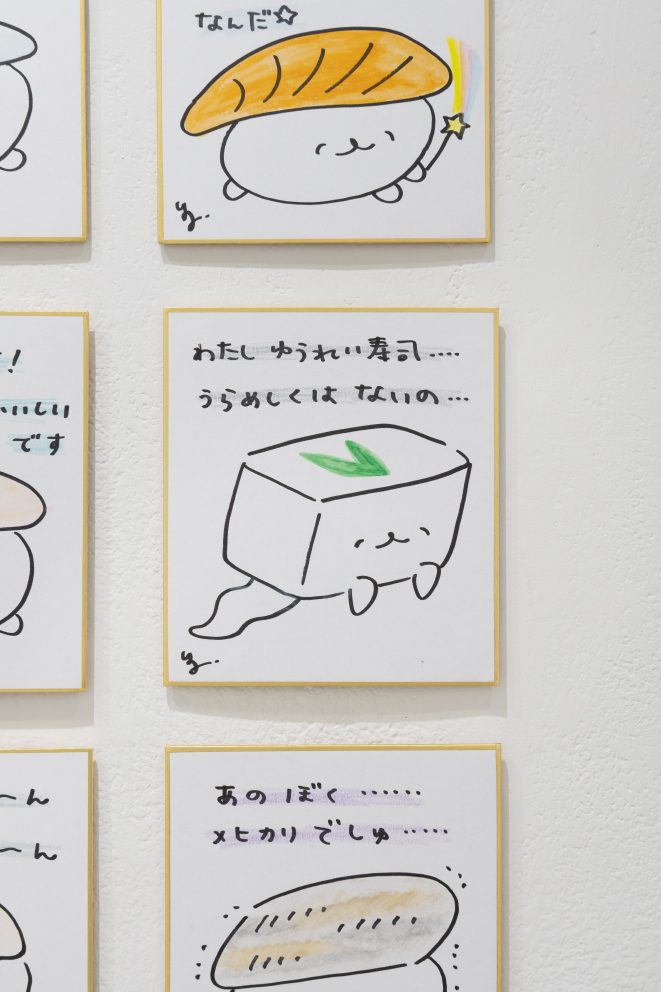 なんだ☆
！
いしい
です
わたし ゆうれい寿司‥‥
うらめしくは ないの…
〜ん
〜ん
あの ぼく ‥‥‥
メヒカリ でしゅ ‥‥‥